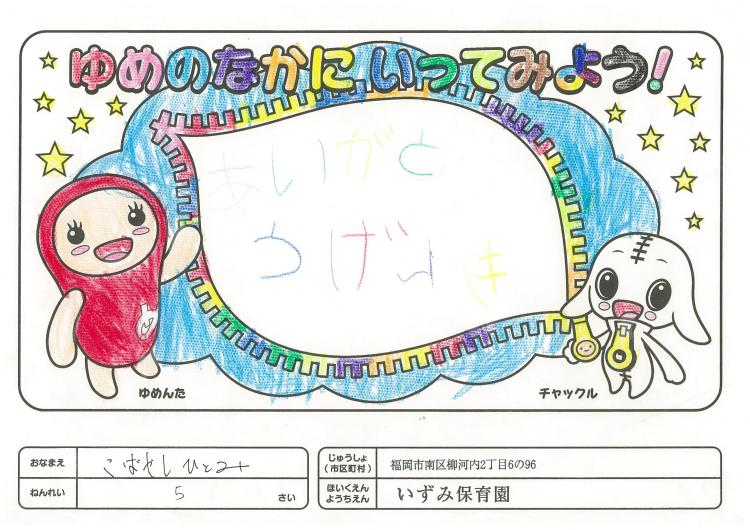 ゆめのなかに いってみよう!
あいがと
うげんき
ゆめんた
チャックル
おなまえ こばやし ひとみ
ねんれい 5 さい
じゅうしょ
(市区町村) 福岡市南区柳河内2丁目6の96
ほいくえん
ようちえん いずみ保育園